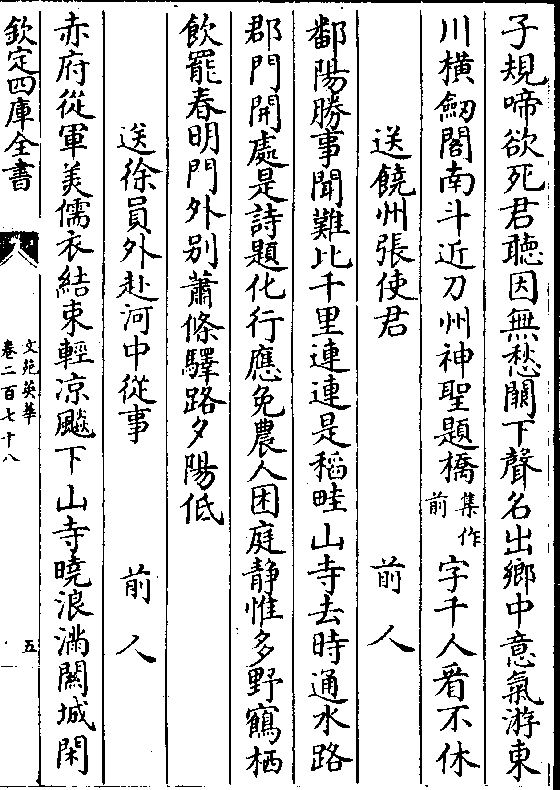 子規啼欲死君聽因無愁闕下聲名出鄉中意氣游東
川横劒閣南斗近刀州神聖題橋集作前字千人看不休
送饒州張使君 前人
鄱陽勝事聞難比千里連連是稻畦山寺去時通水路
郡門開處是詩題化行應免農人困庭静惟多野鶴栖
飲罷春明門外别蕭條驛路夕陽低
送徐員外赴河中從事 前人
赤府從軍美儒衣結束輕凉飈下山寺曉浪滿關城閑
欽定四庫全書
文苑英華
卷二百七十八
五